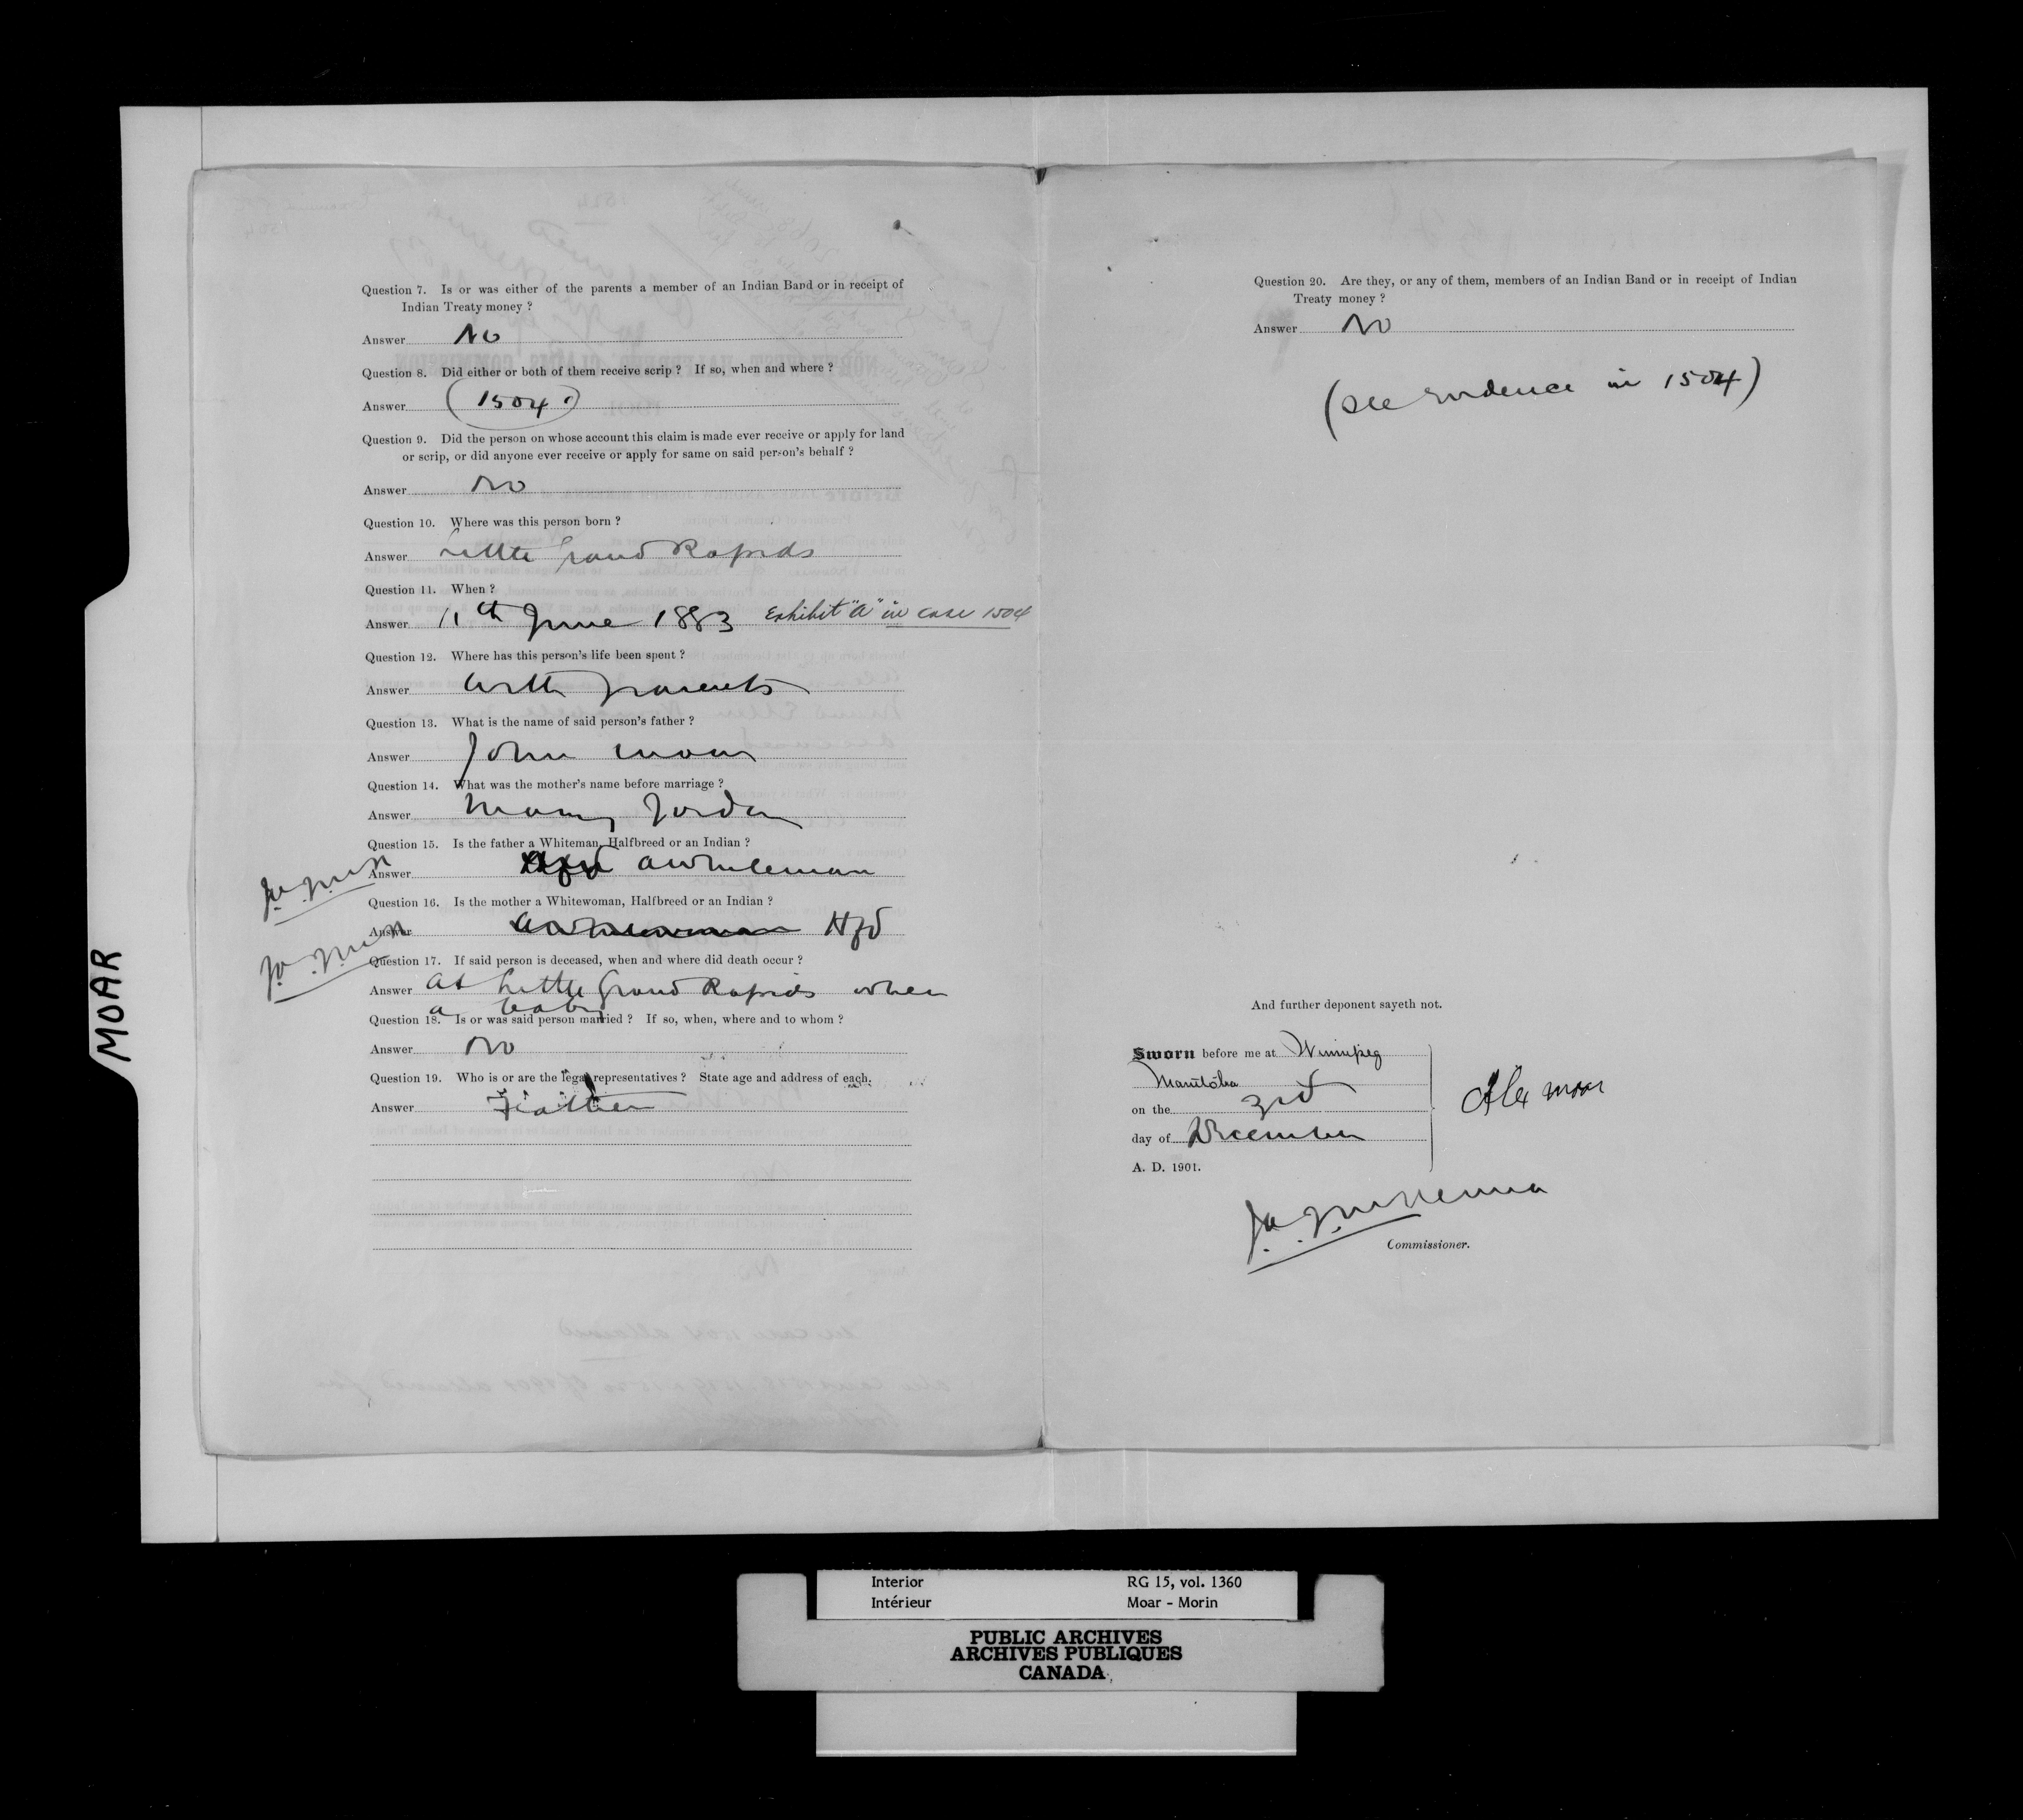 MOAR
Question 7. Is or was either of the parents a member of an Indian Band or in receipt of
Indian Treaty money ?
Answer No
Question 8. Did either or both of them receive scrip ? If so, when and where ?
Answer (1504.)
Question 9. Did the person on whose account this claim is made ever receive or apply for land
or scrip, or did anyone ever receive or apply for same on said person's behalf ?
Answer No
Question 10. Where was this person born ?
Answer Little Grand Rapids
Question 11. When ?
Answer 11th June 1883 Exhibit "A" in case 1504
Question 12. Where has this person's life been spent ?
Answer With parents
Question 13. What is the name of said person's father ?
Answer John Moar
Question 14. What was the mother's name before marriage ?
Answer Mary Jordan
Question 15. Is the father a Whiteman, Halfbreed or an Indian ?
Answer a whiteman
Question 16. Is the mother a Whitewoman, Halfbreed or an Indian ?
Answer Hfd
Question 17. If said person is deceased, when and where did death occur ?
Answer at Little Grand Rapids when
a baby
Question 18. Is or was said person married ? If so, when, where and to whom ?
Answer No
Question 19. Who is or are the legal representatives ? State age and address of each.
Answer Father
Question 20. Are they, or any of them, members of an Indian Band or in receipt of Indian
Treaty money ?
Answer No
(see evidence in 1504)
And further deponent sayeth not.
Sworn before me at Winnipeg
Manitoba
on the 3rd
day of December
A. D. 1901.
Alex Moar
J. A. J. McKenna
Commissioner.
Interior RG 15, vol. 1360
Intérieur Moar - Morin
PUBLIC ARCHIVES
ARCHIVES PUBLIQUES
CANADA